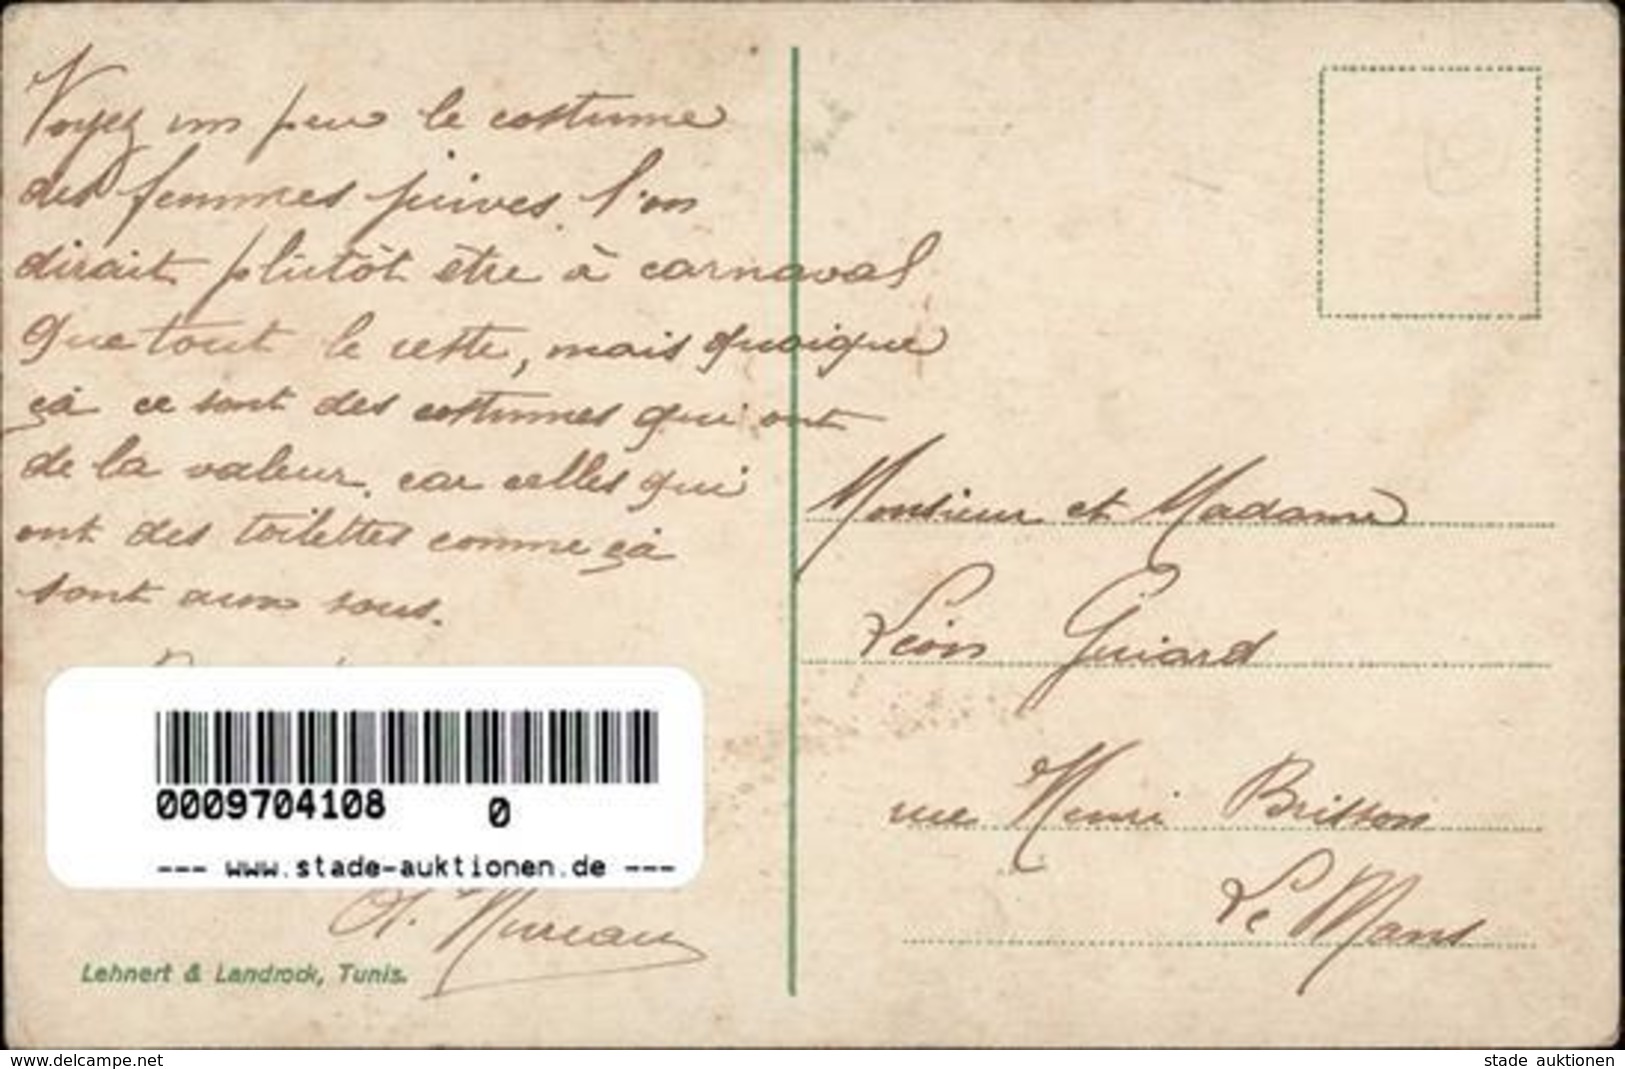 Voyez un peu le costume
des femmes juives. l'on
dirait plutôt être à carnaval
que tout le reste, mais quoique
çà ce sont des costumes qui ont
de la valeur. car celles qui
ont des toilettes comme çà
sont aux sous.
0009704108 0
--- www.stade-auktionen.de ---
Lehnert & Landrock, Tunis.
Monsieur et Madame
Léon Guiard
rue Henri Brisson
Le Mans
www.delcampe.net
stade auktionen